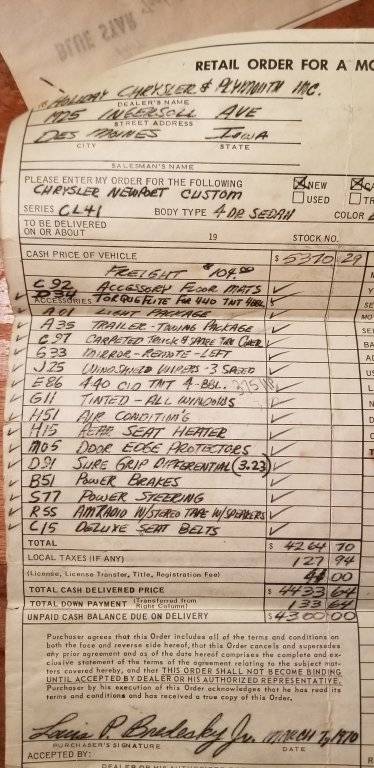 BLUE STAR
RETAIL ORDER FOR A MO
HOLIDAY CHRYSLER & PLYMOUTH INC.
DEALER'S NAME
1725 INGERSOLL AVE
STREET ADDRESS
DES MOINES IOWA
CITY STATE
SALESMAN'S NAME
PLEASE ENTER MY ORDER FOR THE FOLLOWING NEW CA
CHRYSLER NEWPORT CUSTOM USED TR
SERIES CL41 BODY TYPE 4 DR SEDAN COLOR
TO BE DELIVERED
ON OR ABOUT 19 STOCK NO.
CASH PRICE OF VEHICLE $ 5370 29
FREIGHT $104.00
C92 ACCESSORY FLOOR MATS
ACCESSORIES TORQUEFLITE FOR 440 TNT 4BBL
A01 LIGHT PACKAGE
A35 TRAILER-TOWING PACKAGE
C97 CARPETED TRUNK & SPARE TIRE COVER
G33 MIRROR-REMOTE-LEFT
J25 WINDSHIELD WIPERS-3 SPEED
E86 440 CID TNT 4-BBL. 375 HP
G11 TINTED-ALL WINDOWS
H51 AIR CONDITION'G
H15 REAR SEAT HEATER
M05 DOOR EDGE PROTECTORS
D91 SURE GRIP DIFFERENTIAL (3.23)
B51 POWER BRAKES
S77 POWER STEERING
R55 AM RADIO W/STEREO TAPE W/SPEAKERS
C15 DELUXE SEAT BELTS
TOTAL $ 4264 70
LOCAL TAXES (IF ANY) 127 94
(License, License Transfer, Title, Registration Fee) 41 00
TOTAL CASH DELIVERED PRICE $ 4433 64
TOTAL DOWN PAYMENT (Transferred from Right Column) 133 64
UNPAID CASH BALANCE DUE ON DELIVERY $ 4300 00
Purchaser agrees that this Order includes all of the terms and conditions on
both the face and reverse side hereof, that this Order cancels and supersedes
any prior agreement and as of the date hereof comprises the complete and ex-
clusive statement of the terms of the agreement relating to the subject mat-
ters covered hereby, and that THIS ORDER SHALL NOT BECOME BINDING
UNTIL ACCEPTED BY DEALER OR HIS AUTHORIZED REPRESENTATIVE.
Purchaser by his execution of this Order acknowledges that he has read its
terms and conditions and has received a true copy of this Order.
Louis P. Jr. MARCH 7, 1970
PURCHASER'S SIGNATURE DATE
ACCEPTED BY:
DEALER OR HIS AUTHORIZED